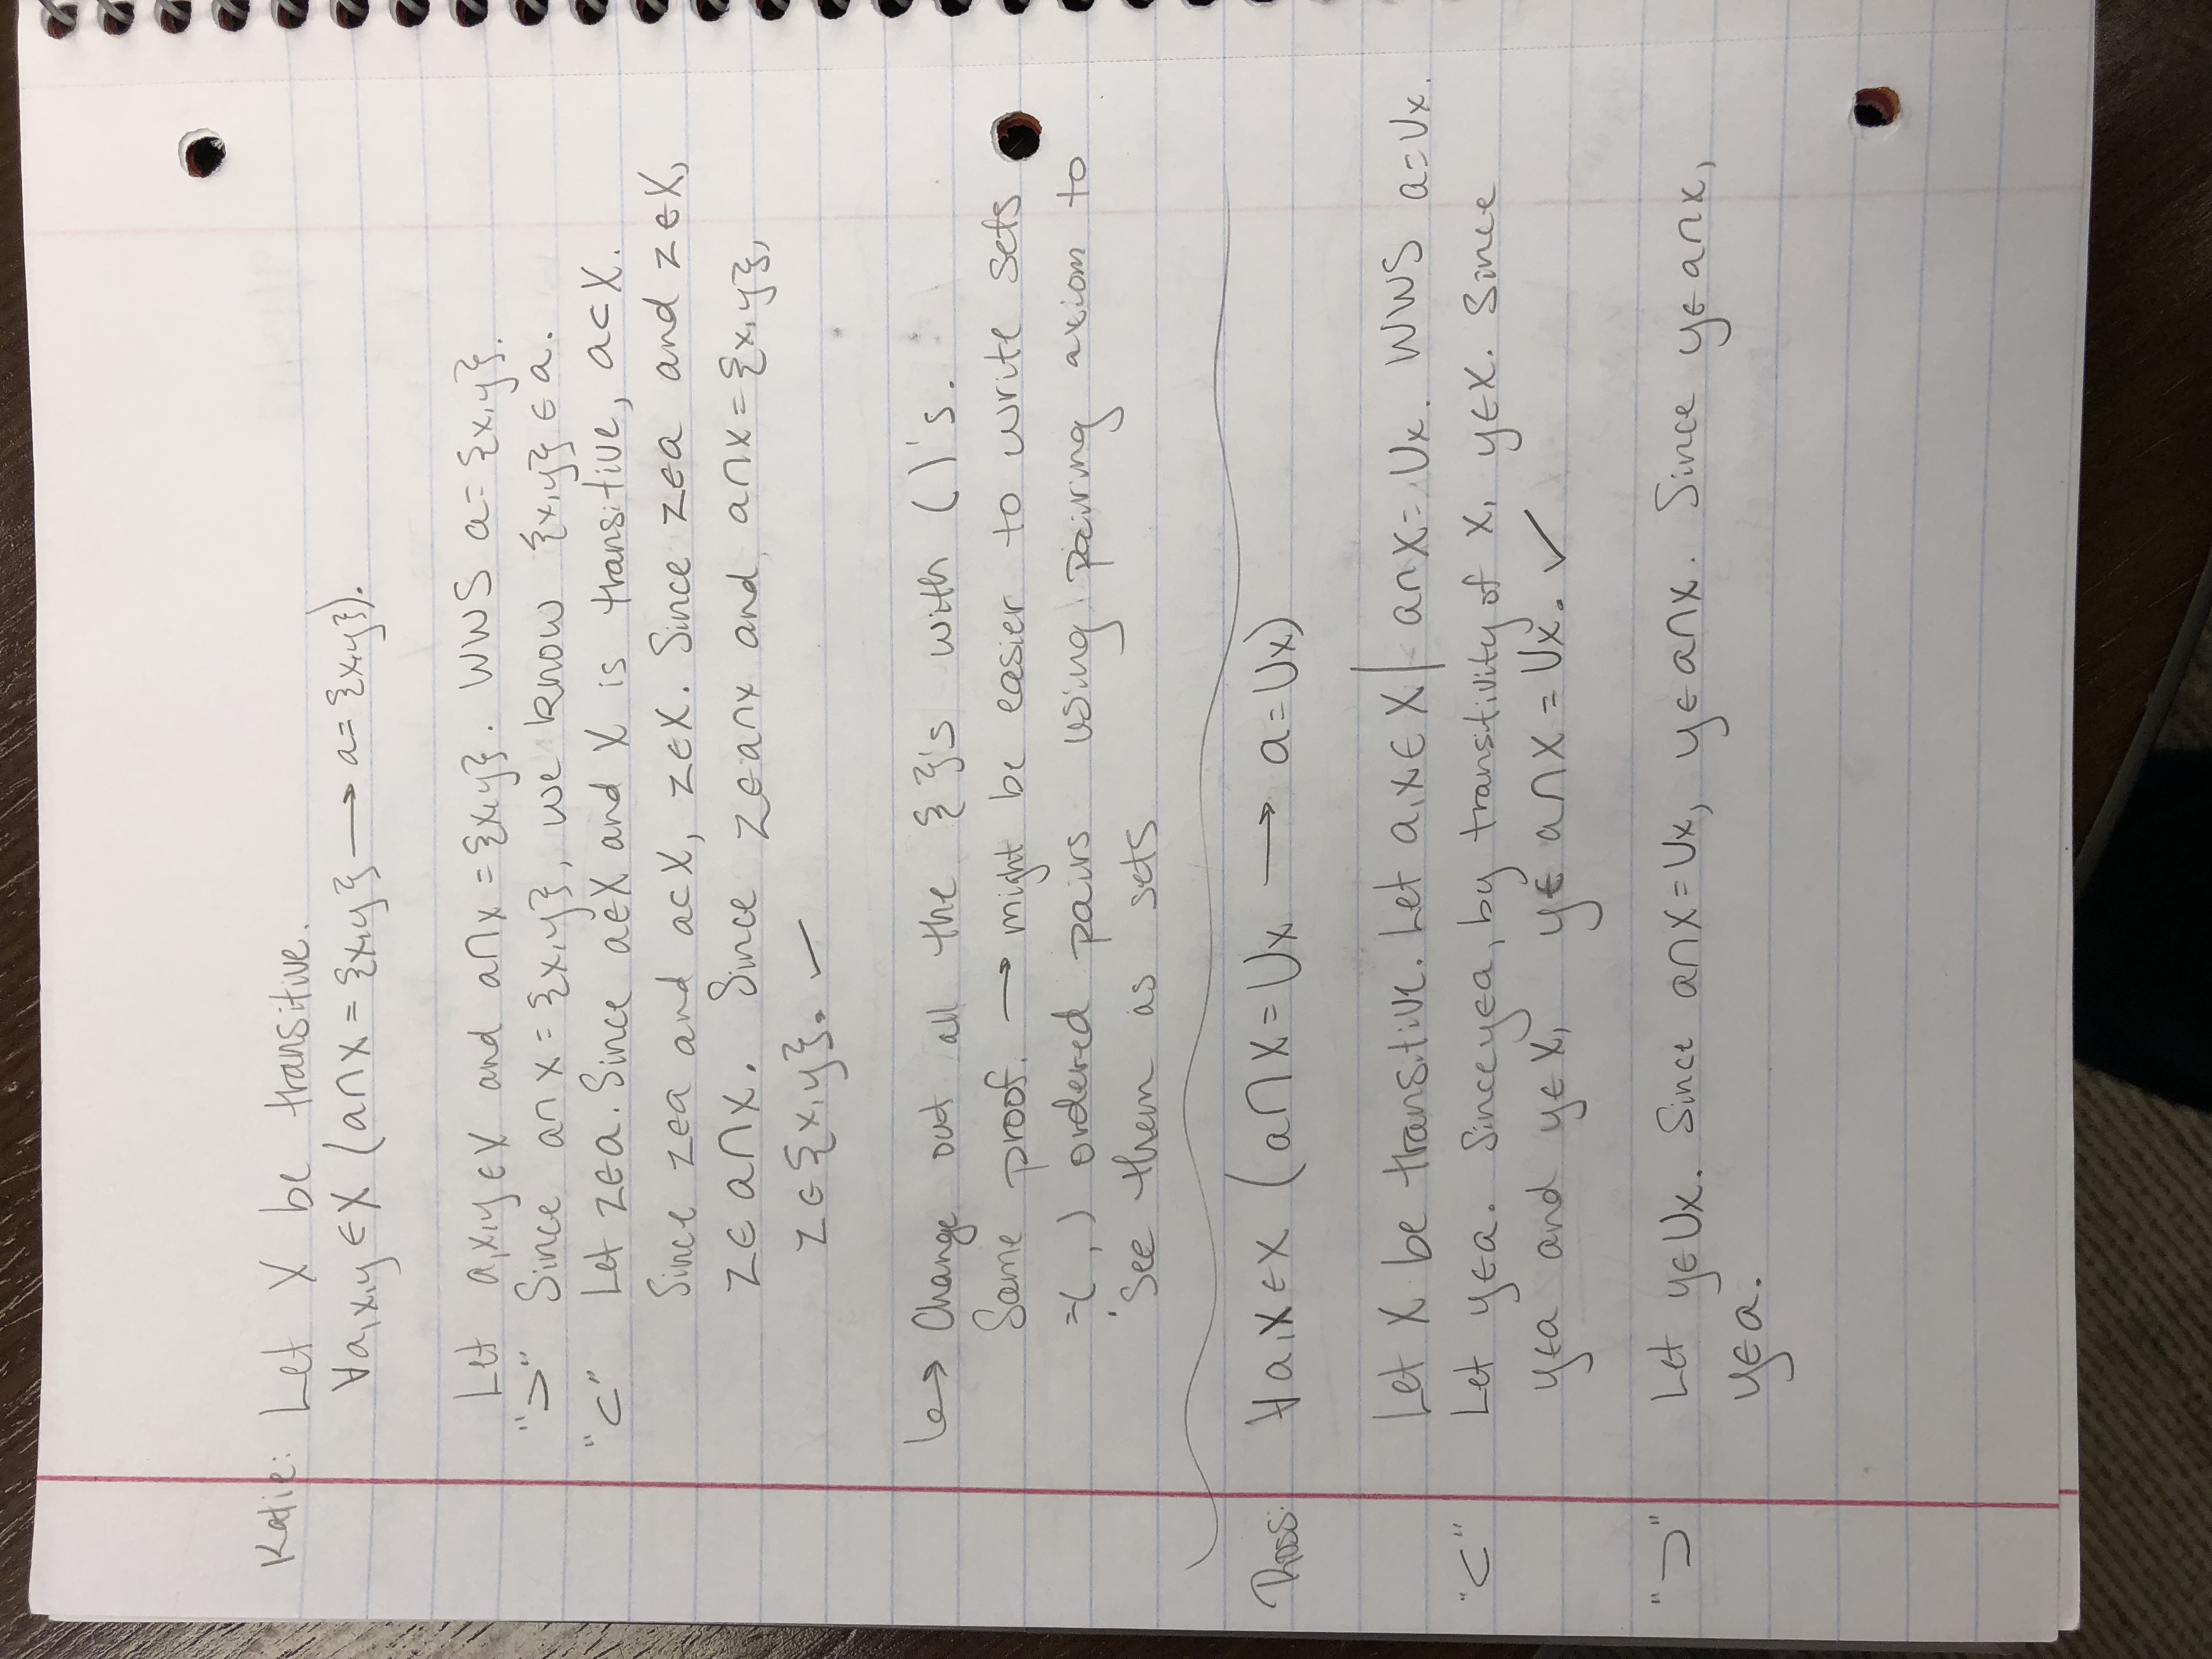 Katie: Let X be transitive.
∀a,x,y ∈ X (a∩X = {x,y} ⟶ a = {x,y}).
Let a,x,y ∈ X and a∩X = {x,y}. WWS a = {x,y}.
"⊃" Since a∩X = {x,y}, we know {x,y} ∈ a.
"⊂" Let z∈a. Since a∈X and X is transitive, a⊂X.
Since z∈a and a⊂X, z∈X. Since z∈a and z∈X,
z∈ a∩X. Since z∈a∩X and a∩X = {x,y},
z∈{x,y}. ✓
↪ Change out all the { }'s with ( )'s.
Same proof. → might be easier to write sets
=( , ) ordered pairs using pairing axiom to
see them as sets
Ross: ∀a,x∈X (a∩X = ∪x ⟶ a=∪x)
Let X be transitive. Let a,x∈X | a∩X = ∪x. WWS a=∪x.
"⊂" Let y∈a. Since y∈a, by transitivity of X, y∈X. Since
y∈a and y∈X, y∈ a∩X = ∪x. ✓
"⊃" Let y∈∪x. Since a∩X=∪x, y∈a∩X. Since y∈a∩X,
y∈a.